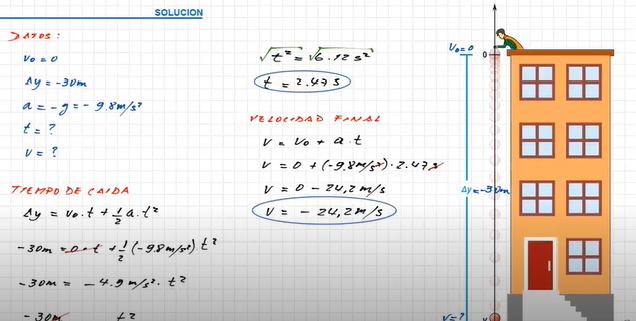 SOLUCION
DATOS:
v₀ = 0
Δy = -30m
a = -g = -9.8m/s²
t = ?
v = ?
TIEMPO DE CAIDA
Δy = v₀.t + 1/2 a.t²
-30m = 0.t + 1/2 (-9.8m/s²) t²
-30m = -4.9m/s² . t²
-30m t²
√t² = √6.12s²
t = 2.47s
VELOCIDAD FINAL
v = v₀ + a.t
v = 0 + (-9.8m/s²) . 2.47s
v = 0 - 24,2m/s
v = -24,2m/s
v₀=0
0
Δy=-30m
v=?